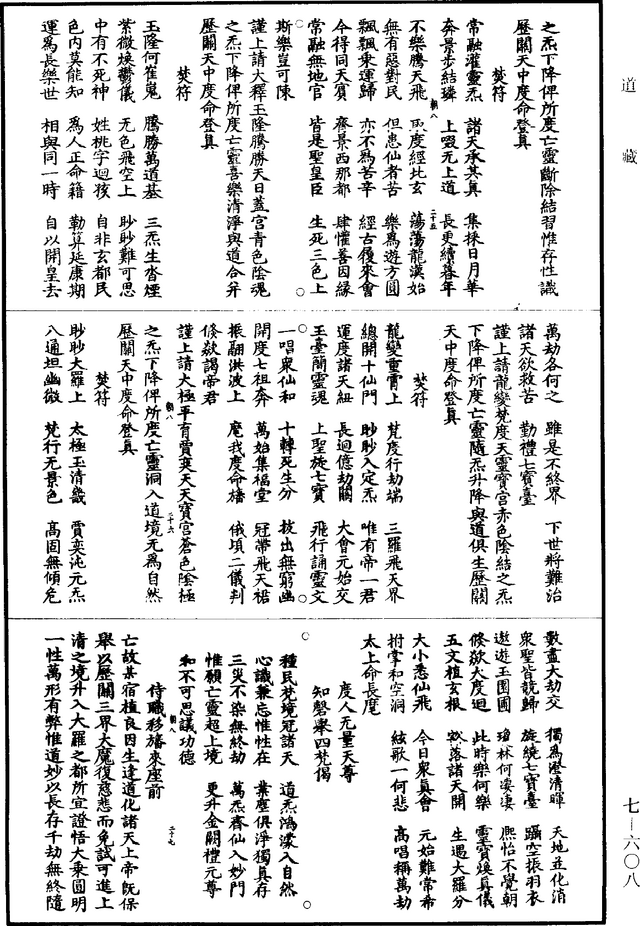 道藏
之炁下降俾所度亡靈斷除結習惟存性識
歷關天中度命登真
焚符
常融灌靈炁　諸天承其真　集採日月華
奔景步結璘　上啜无上道　長更續暮年
不樂騰天飛　夙度經比玄　蕩蕩龍漢始
無有惡對民　但患仙者苦　樂爲遊方圓
飄飄乘運歸　亦不爲苦辛　經古復來會
今得同天賓　齊景西那都　肆懽善因緣
常融無地官　皆是聖皇臣　生死三色上
斯樂豈可陳
謹上請太釋玉隆騰勝天日蓋宮青色陰魂
之炁下降俾所度亡靈喜樂清淨與道合并
歷關天中度命登真
焚符
玉隆何崔嵬　騰勝萬道基　三炁生沓煙
紫微煥鬱儀　无色飛空上　眇眇難可思
中有不死神　姓桃字迴孩　自非玄都民
色內莫能知　爲人正命籍　勒筭延康期
運爲長樂世　相與同一時　自以開皇去
萬劫各何之　雖是不終界　下世將難治
諸天欲救苦　勤禮七寶臺
謹上請龍變梵度天靈寶宮赤色陰結之炁
下降俾所度亡靈隨炁升降與道俱生歷關
天中度命登真
焚符
龍變重霄上　梵度行劫端　三羅飛天界
總開十仙門　眇眇入定炁　唯有帝一君
運度諸天紐　長迴億劫關　大會元始交
玉臺簡靈魂　上聖旋七寶　飛行誦靈文
一唱衆仙和　十轉死生分　拔出無窮幽
開度七祖奔　萬始集福堂　冠帶飛天裙
振翮洪波上　麾我度命旛　俄頃二儀判
倏欻謁帝君
謹上請太極平育賈奕天天寶宮蒼色陰極
之炁下降俾所度亡靈洞入道境无爲自然
歷關天中度命登真
焚符
眇眇大羅上　太極玉清畿　賈奕沌元炁
八通坦幽微　梵行无景色　高固無傾危
數盡大劫交　獨爲澄清暉　天地並化消
衆聖皆競歸　旋繞七寶臺　躡空振羽衣
遨遊玉國圃　瓊林何淒淒　熈怡不覺朝
倏欻大度迴　此時樂何樂　靈寶煥真儀
五文植玄根　欻落諸天開　生遇大羅分
大小悉仙飛　今日衆真會　元始難常希
拊掌和空洞　絃歌一何悲　高唱稱萬劫
太上命長麾
度人无量天尊
知磬舉四梵偈
種民梵境冠諸天　道炁鴻濛入自然
心識兼忘惟性在　業塵俱淨獨真存
三災不染無終劫　萬炁齊仙入妙門
惟願亡靈超上境　更升金闕禮元尊
和不可思議功德
侍職移旛來座前
亡故某宿植良因生逢道化諸天上帝既保
舉以歷關三界大魔復慈悲而免試可進上
清之境升入大羅之都所宜證悟大乘圓明
一性萬形有弊惟道妙以長存千劫無終隨
七—六〇八